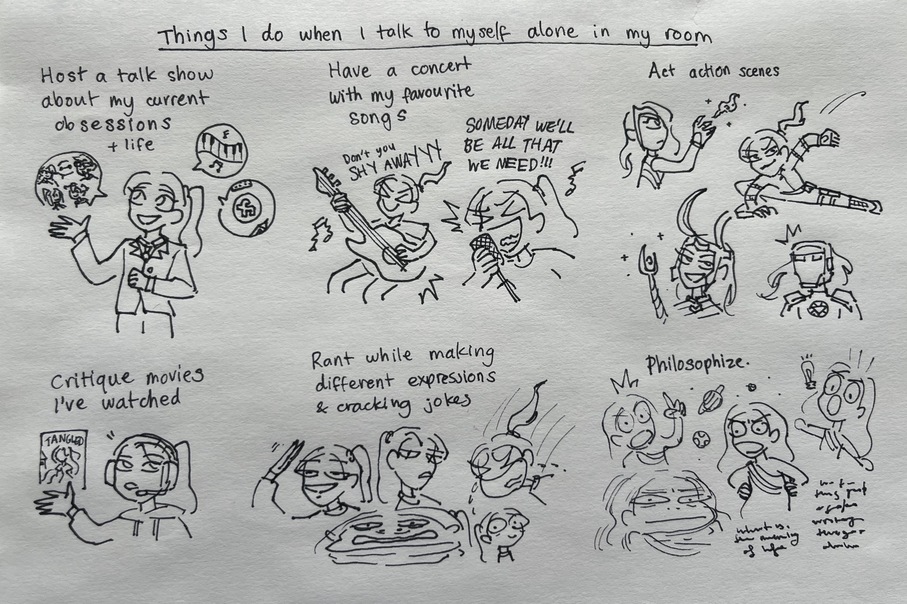 Things I do when I talk to myself alone in my room
Host a talk show
about my current
obsessions
+ life
Have a concert
with my favourite
songs
Don't you
SHY AWAYYY
SOMEDAY WE'LL
BE ALL THAT
WE NEED!!!
Act action scenes
Critique movies
I've watched
TANGLED
Rant while making
different expressions
& cracking jokes
Philosophize.
what is
the meaning
of life